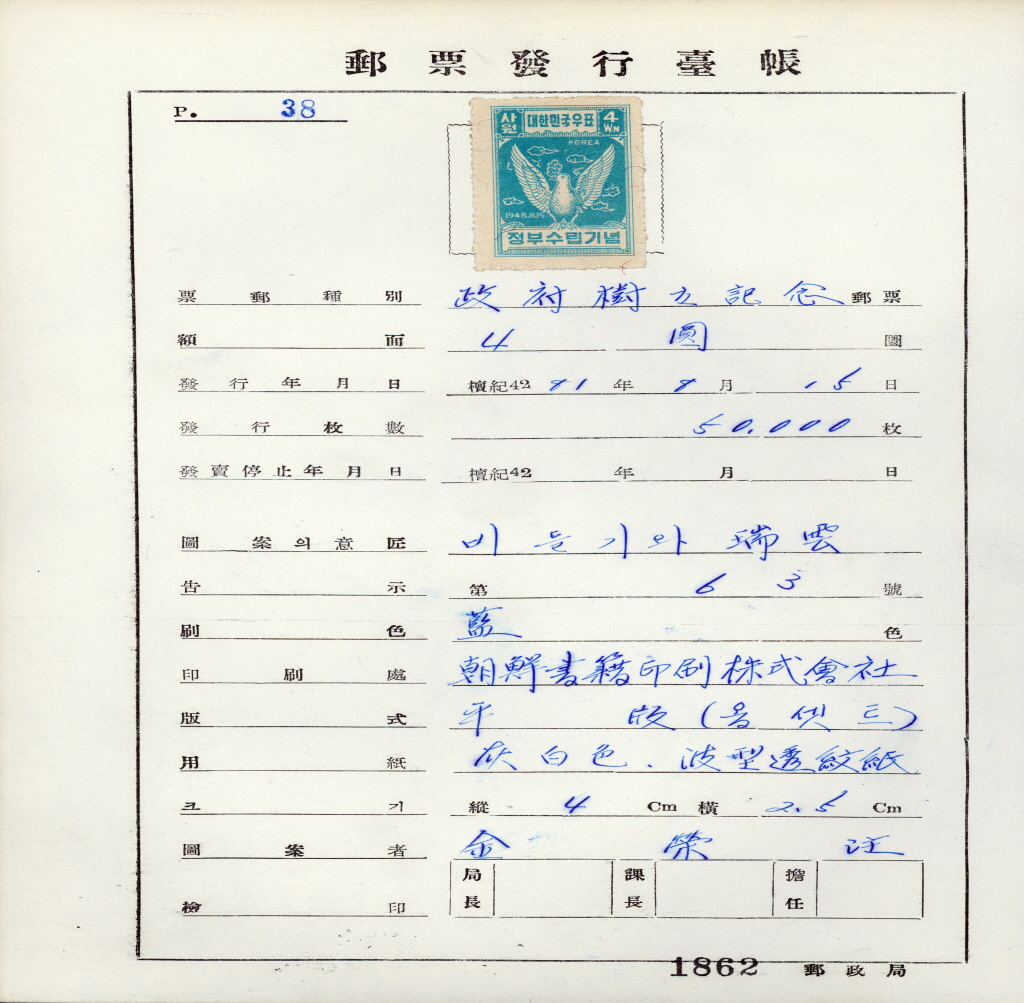 郵票發行臺帳
P. 38
사원 대한민국우표 4 WN
KOREA
1948.8.15
정부수립기념
票郵種別 政府樹立記念 郵票
額面 4 圓 圜
發行年月日 檀紀42 81 年 8 月 15 日
發行枚數 50.000 枚
發賣停止年月日 檀紀42 年 月 日
圖案의意匠 비둘기와 瑞雲
告示 第 63 號
刷色 藍 色
印刷處 朝鮮書籍印刷株式會社
版式 平版(옵셋트)
用紙 灰白色. 波型透紋紙
크기 縱 4 Cm 橫 2.5 Cm
圖案者 金榮注
檢印 局長 課長 擔任
1862 郵政局